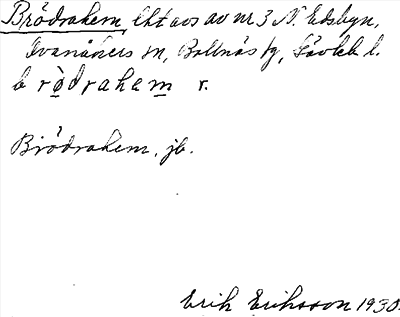 Brödrahem, lht avs av nr 3 N. Edsbyn,
Ovanåkers sn, Bollnäs fg, Gävleb l.
b r ò̤ d r a h e m̲ r.
Brödrahem, jb.
Erik Eriksson 1930.